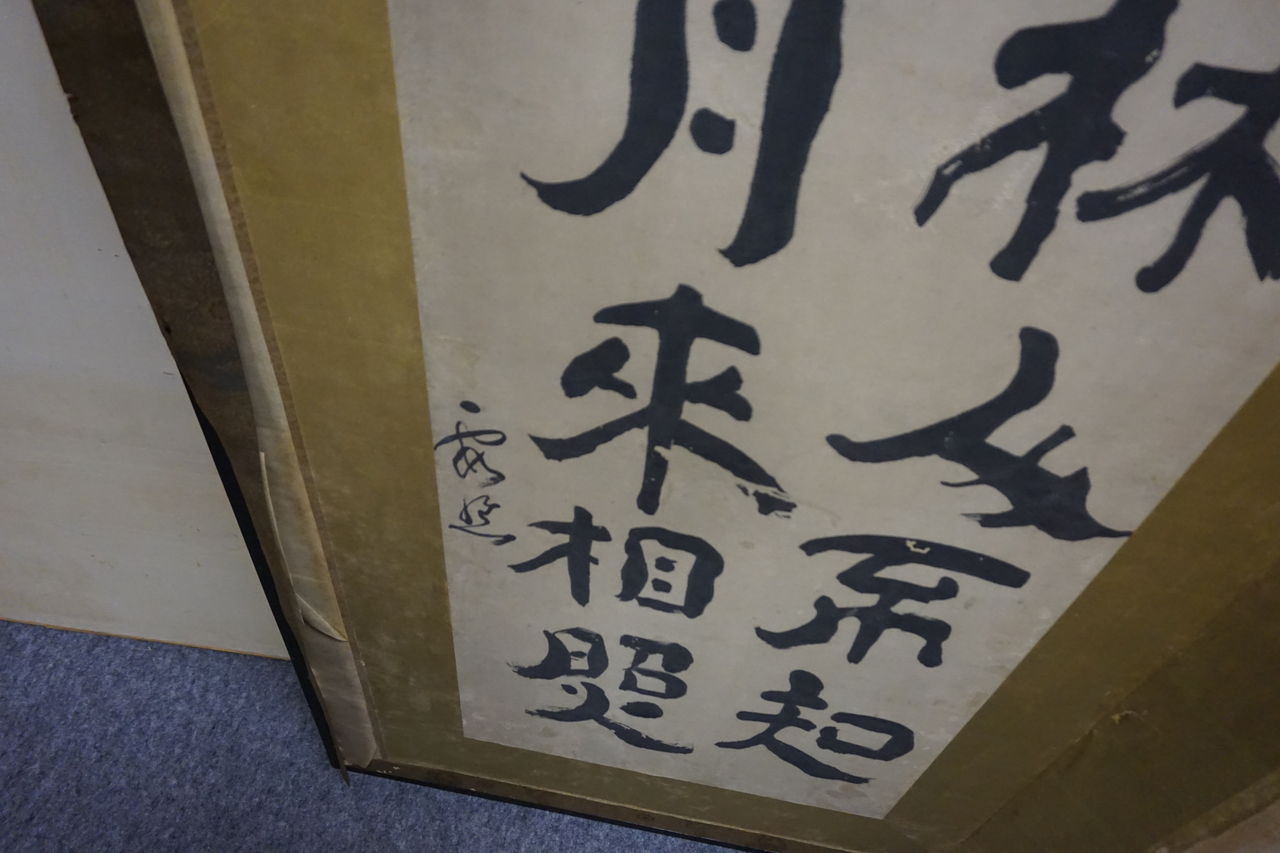 林人不知
月來相照